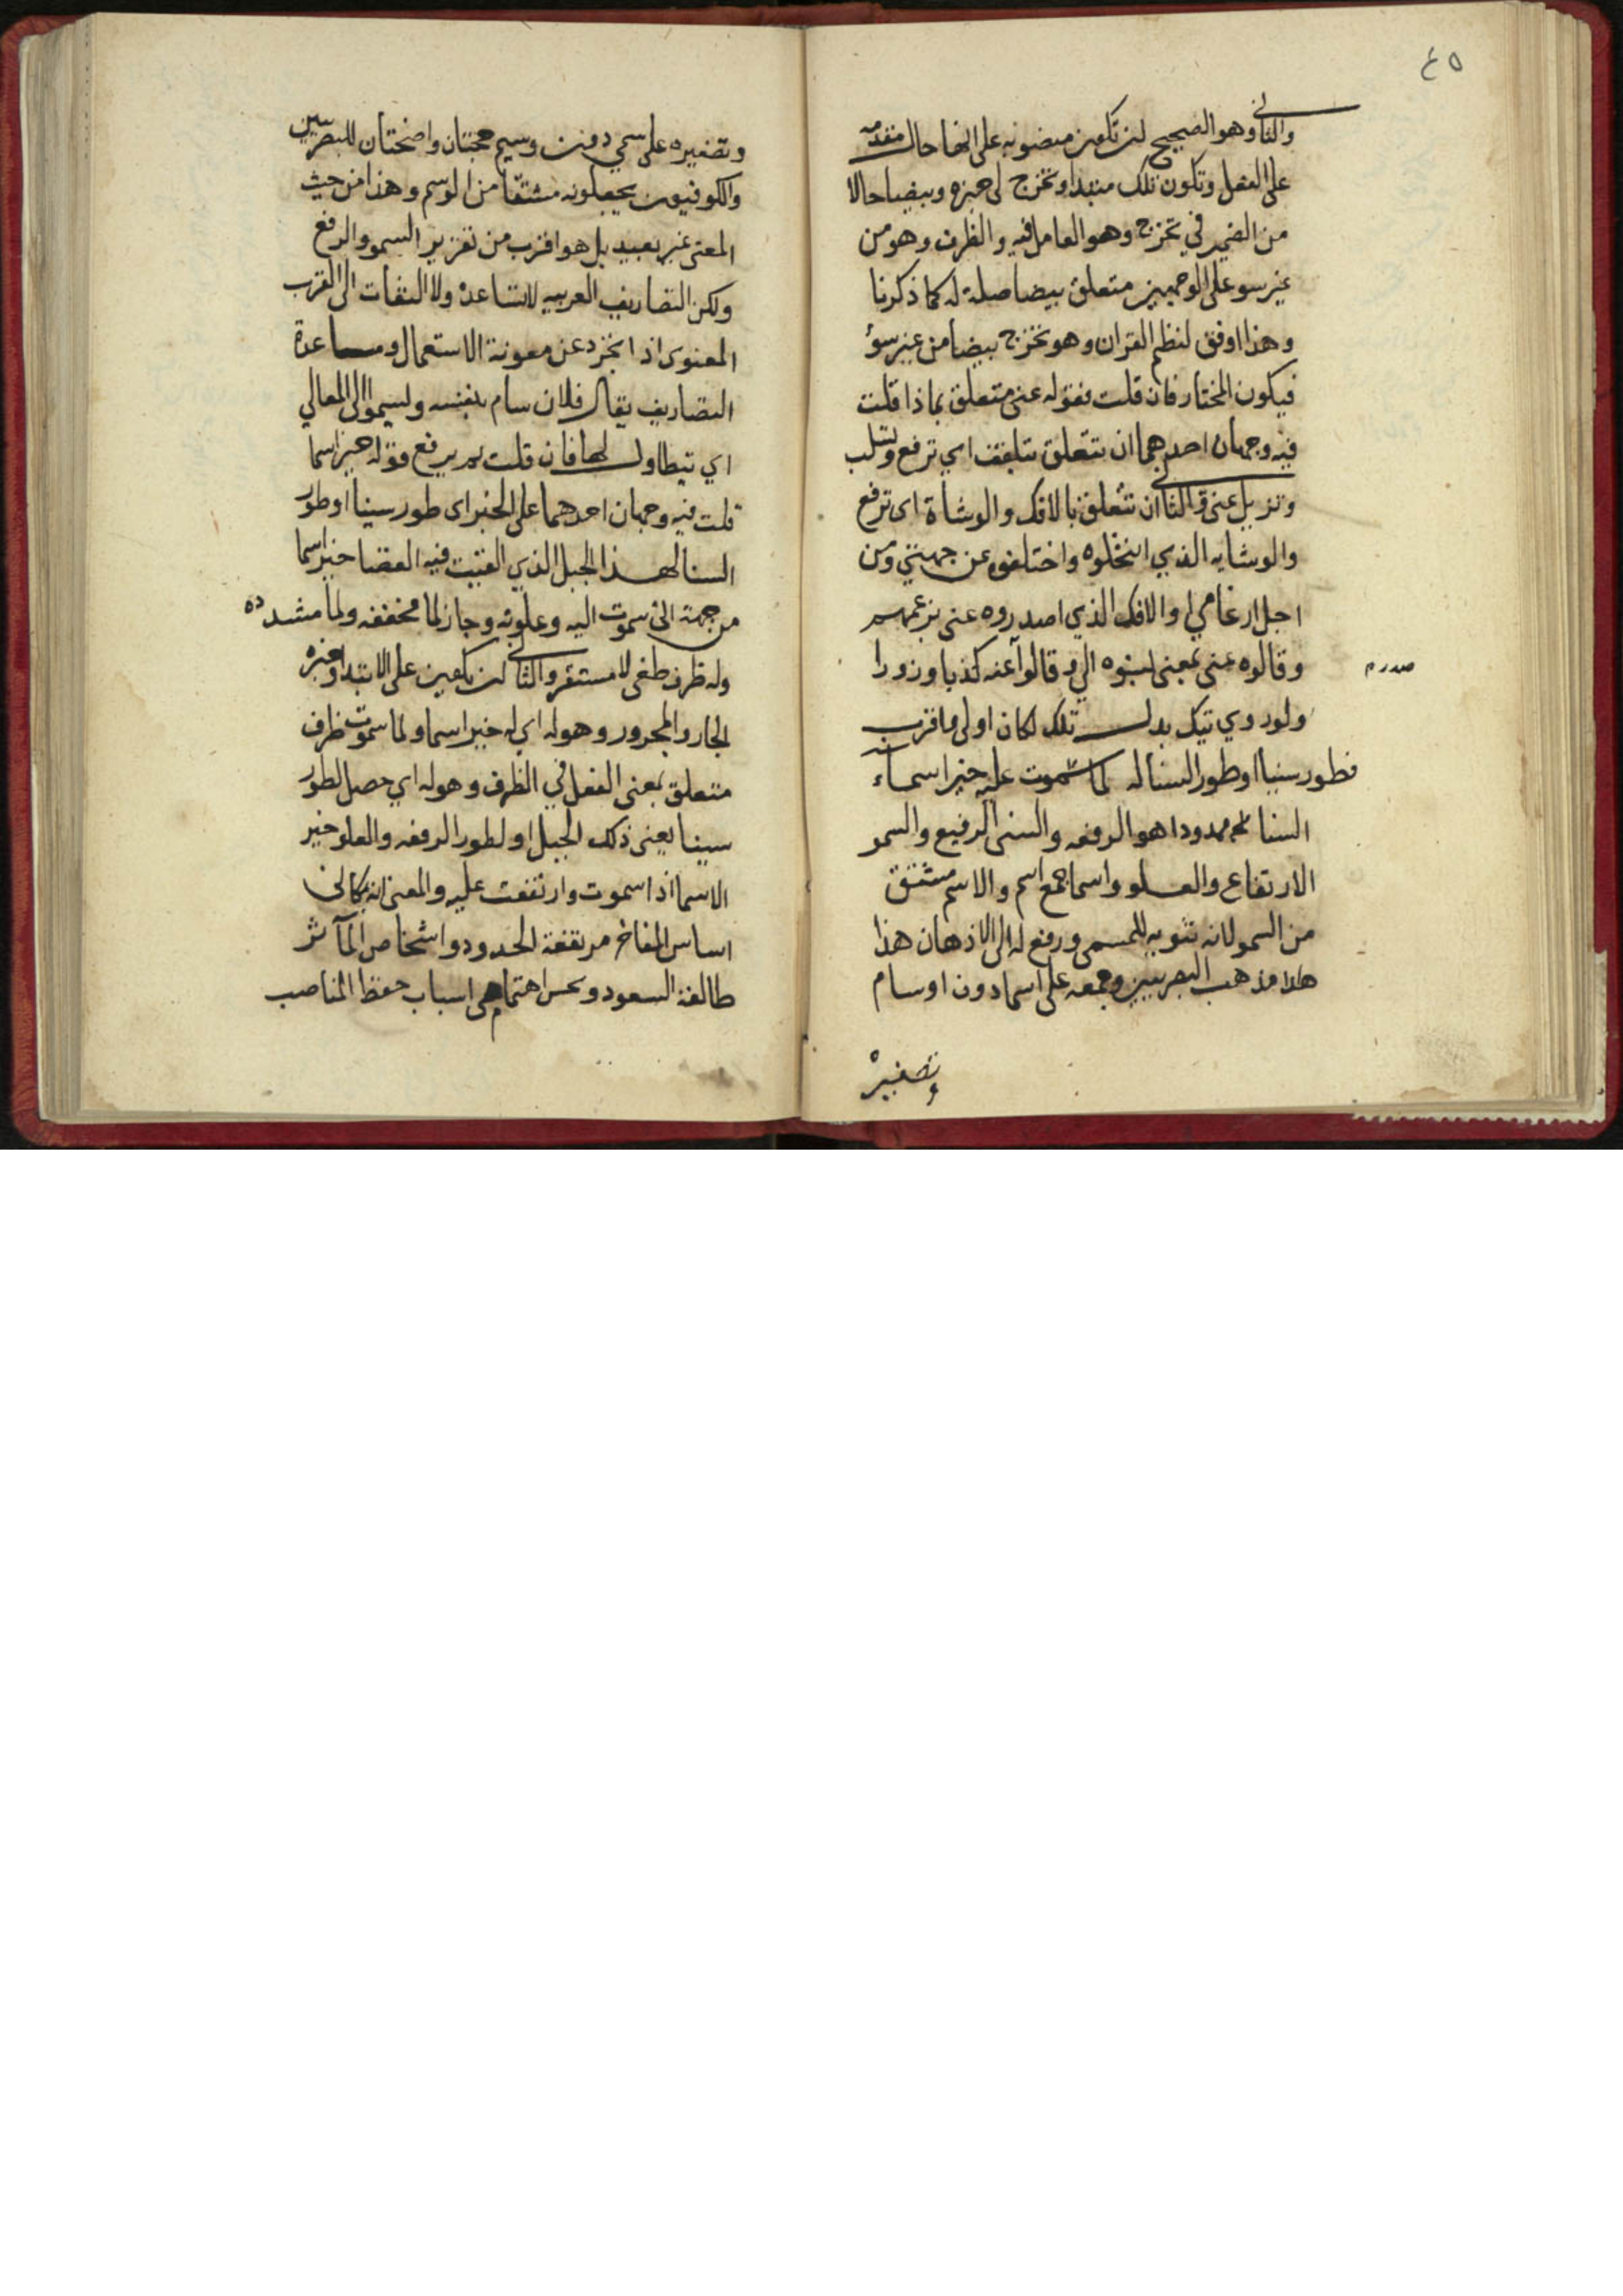 ٤٥
والثاني وهو الصحيح ان تكون منصوبه على انها حال متقدمه
على الفعل وتكون تلك مبتدا وتخرج لى خبره وبيضا حالا
من الضمير في تخرج وهو العامل فيه والظرف وهو من
غير سو على الوجهين متعلق ببيضا صلة له كما ذكرنا
وهذا اوفق لنظم القران وهو تخرج بيضا من غير سوؤ
فيكون المختار فان قلت فقوله عنى متعلق بماذا قلت
فيه وجهان احدهما ان تتعلق بتلقف اي ترفع وتسلب
وتزيل عنى والثاني ان تتعلق بالافك والوشاة اى ترفع
والوشايه الذي انتحلوه واختلفوه عن جهتي ومن
اجل ارغامي او الافك الذي اصدروه عنى بزعمهم
وقالوه عنى بمعنى نسبوه الي وقالوا عنه كذبا وزورا
ولو روي تيك بدل تلك لكان اولى واقرب
فطور سينا او طور السنا له لما سموت عليه خير اسماء
السنا ممدودا هو الرفعه والسنى الرفيع والسمو
الارتفاع والعلو واسما جمع اسم والاسم مشتق
من السمو لانه تنويه للمسمى ورفع له الى الاذهان هذا
هذا مذهب البصريين وجمعه على اسما دون اوسام
وتصغيره
وتصغيره على سمي دون وسيم حجتان واضحتان للبصريين
والكوفيون يجعلونه مشتقا من الوسم وهذا من حيث
المعنى غير بعيد بل هو اقرب من تقرير السمو والرفع
ولكن التصاريف العربيه لا تساعده ولا التفات الى القرب
المعنوى اذا تجرد عن معونة الاستعمال ومساعدة
التصاريف يقال فلان سام بنفسه وليسمو الى المعالي
اي يتطاول لها فان قلت بم يرفع قوله خير اسما
قلت فيه وجهان احدهما على الخبر اى طور سينا او طور
السنا لهذا الجبل الذي القيت فيه العصا خير اسما
من جهة انى سموت اليه وعلوته وجاز لما مخففه ولما مشدده
وله ظرف لغى لا مستقر والثاني ان يكون على الابتدا وخبره
الجار والمجرور وهو له اي له خير اسما ولما سموت ظرف
متعلق بمعنى الفعل في الظرف وهو له اي حصل لطور
سينا يعنى ذلك الجبل او لطور الرفعه والعلو خير
الاسما اذا سموت وارتفعت عليه والمعنى انه بكاني
اساس المفاخر مرتفعة الحدود واشخاص المآثر
طالعة السعود وبحسن اهتمامي اسباب حفظ المناصب